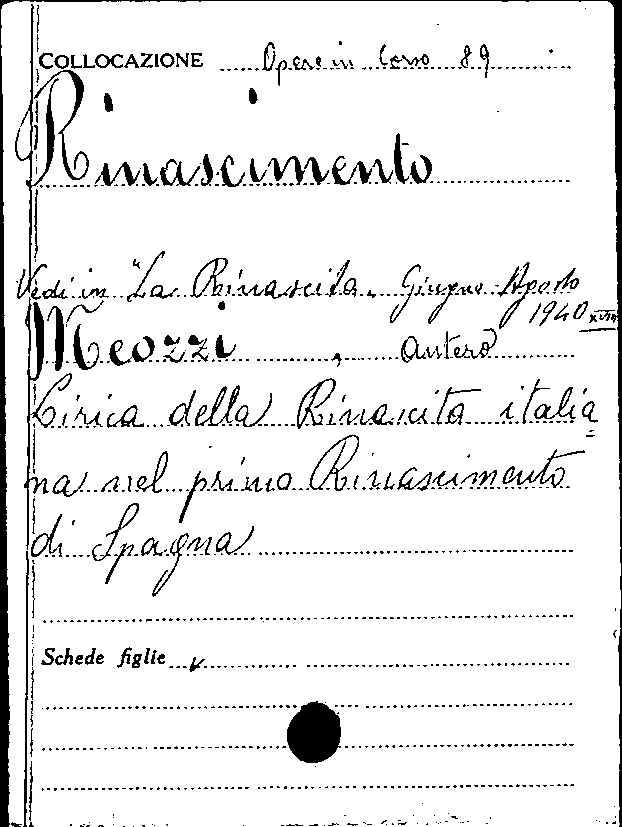 COLLOCAZIONE Opere in Corso 89
Rinascimento
Vedi in "La Rinascita" Giugno-Agosto
1940 XVIII
Meozzi, Antero
Lirica della Rinascita italia=
na nel primo Rinascimento
di Spagna
Schede figlie v